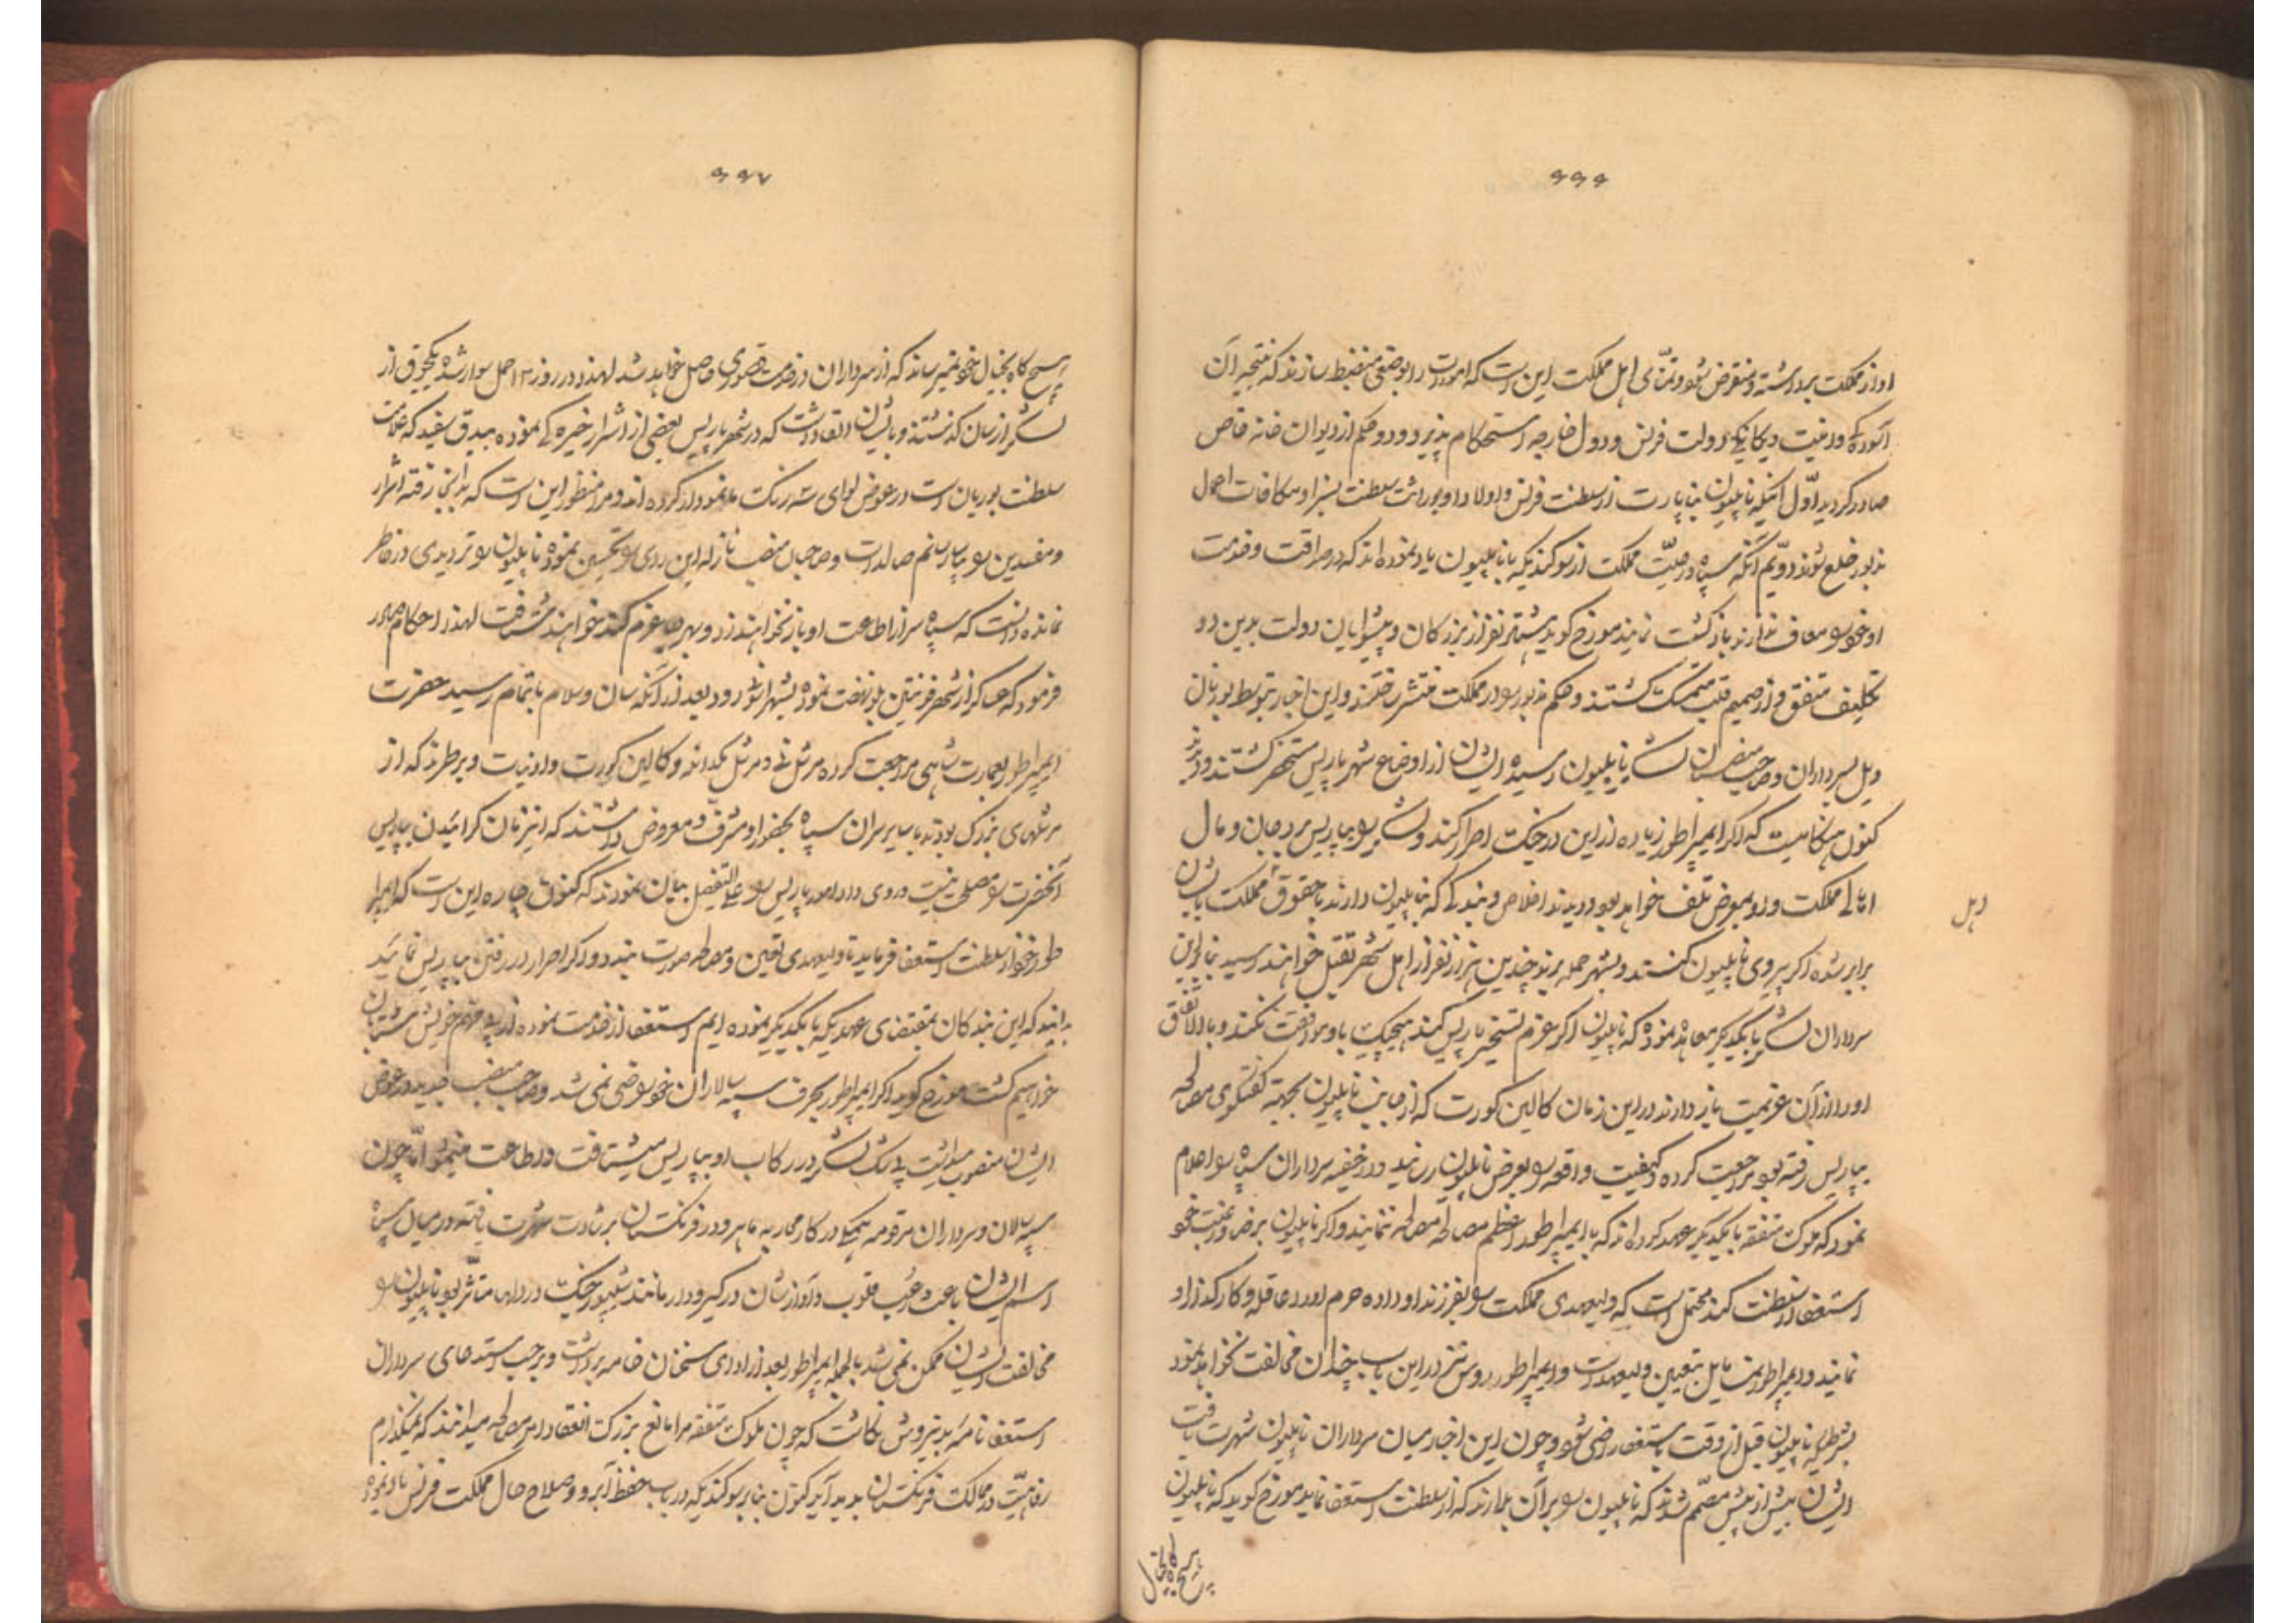 ۶۶۶
او از مملکت برداشته و منقرض شود و تمنّای اهل مملکت این است که امورات را بوضعی منضبط سازند که نتیجه آن
آسودگی و امنیت و یگانگی دولت فرنس و دول خارجه استحکام پذیرد و دو حکم از دیوان خانه خاص
صادر گردید اوّل اینکه ناپلیون بناپارت از سلطنت فرنس و اولاد او بوراثت سلطنت بسزا و مکافات اعمال
مزبور خلع شوند دویّم آنکه سپاه و رعیّت مملکت از سوگندیکه با ناپلیون یاد نموده اند که در صداقت و خدمت
او خود را معاف دارند بازگشت نمایند مورخ گوید بیشتر نفر از بزرگان و پیشوایان دولت بدین دو
تکلیف متفق و از صمیم قلب متمسک گشتند و حکم مزبور را در مملکت منتشر ساختند و این اخبار بتوسط بوربان
و بل بسرداران و صاحب منصبان لشکر ناپلیون رسیده ایشان از اوضاع شهر پاریس مستحضر گشتند و
کنون هنگامیست که اگر ایمپراطور زیاده از این در جنگ اصرار کند و لشکر را بپاریس برد جان و مال
اهالی مملکت در معرض تلف خواهد بود و دیدند اخلاص و بندگی که بناپلیون دارند با حقوق مملکت یکسان
اهل
برابر شده اگر پیروی ناپلیون کنند و بشهر حمله برند چندین هزار نفر از اهل شهر بقتل خواهند رسید بنابراین
سرداران لشکر با یکدیگر معاهده نموده که ناپلیون اگر عزم تسخیر پاریس کند هیچیک با او موافقت نکنند و بالاتفاق
او را از آن عزیمت باز دارند در این زمان کالین کورت که از جانب ناپلیون بجهة گفتگوی مصالحه
بپاریس رفته بود مراجعت کرده کیفیت واقعه را بعرض ناپلیون رسانید و در خفیه سرداران سپاه را اعلام
نمود که ملوک متفقه با یکدیگر عهد کرده اند که با ایمپراطور اعظم مصالحه ننمایند و اگر ناپلیون برضا و رغبت خود
استعفا از سلطنت کند محتمل است که ولیعهدی مملکت را بفرزند او داده حرم او را عاقله و کارگذار او
نمایند و ایمپراطور نمسا مایل بتعیین ولیعهد است و ایمپراطور روس نیز در این باب چندان مخالفت نخواهد نمود
بشرطیکه ناپلیون قبل از وقت باستعفا راضی شود و چون این اخبار میان سرداران ناپلیون شهرت یافت
ایشان بیش از پیش مصمّم شدند که ناپلیون را بر آن بدارند که از سلطنت استعفا نماید مورخ گوید که ناپلیون
هیچگاه بخیال
۶۶۷
هیچ گاه بخیال خود نمیرساند که از سرداران در خدمت قصوری حاصل خواهد شد لهذا در روز ۱۳ حمل سوار شده یکجوق از
لشکر از سان گذشتند و بایشان القا داشت که در شهر پاریس بعضی از اشرار خیره گی نموده بیدق سفید که علامت
سلطنت بوربان است در عوض لوای سه رنگ ما نمودار کرده اند و مرا منظور این است که بدانجا رفته اشرار
و مفسدین را بسیاست رسانم صالدات و صاحبان منصب نازله این رای را تحسین نموده ناپلیون را تردیدی در خاطر
نمانده دانست که سپاه سر از اطاعت او باز نخواهند زد و بهر جا عزم کند خواهند شتافت لهذا احکام صادر
فرمود که عساکر از شهر فونتین بلو نهضت نموده بشهر اسون رود بعد از آنکه سان و سلام باتمام رسید حضرت
ایمپراطور بعمارت شاهی مراجعت کرده مرشل نی و مرشل مکدانلد و کالین کورت و اودنیات و برطرند که از
مرشلهای بزرگ بودند با سایر سران سپاه بحضور او مشرف و معروض داشتند که اینزمان گرائیدن بپاریس
آنحضرت را مصلحت نیست و روی داد امور پاریس را علی التفصیل بیان نمودند که کنون چاره این است که ایمپرا
طور خود از سلطنت استعفا فرماید تا ولیعهدی تعین و مصالحه صورت بندد و اگر اصرار در رفتن بپاریس نمائید
بدانید که این بندگان بمقتضای عهدیکه با یکدیگر نموده ایم استعفا از خدمت نموده از پی مهم خویش شتابان
خواهیم گشت مورخ گوید اگر ایمپراطور بحرف سپه سالاران خود راضی نمی شد و صاحب منصب جدید در عوض
ایشان منصوب میداشت بی شک لشکر در رکاب او بپاریس میشتافت و اطاعت مینمود امّا چون
سپه سالاران و سرداران مرقومه همگی در کار محاربه ماهر و در فرنگستان برشادت شهرت یافته در میان سپاه
اسم ایشان باعث رعب قلوب و آوازشان در گیر و دار مانند شیپور جنگ در دلها متأثر بود ناپلیون را
مخالفت ایشان ممکن نمی شد بالجمله ایمپراطور بعد از ادای سخنان خامه برداشت و برحسب استدعای سرداران
استعفا نامه بدین روش نگاشت که چون ملوک متفقه مرا مانع بزرگ انعقاد امر مصالحه میدانند که نمیگذارم
رفاهیّت در ممالک فرنگستان پدید آید کنون بنابر سوگندیکه در باب حفظ آبرو و صلاح حال مملکت فرنس یاد نموده